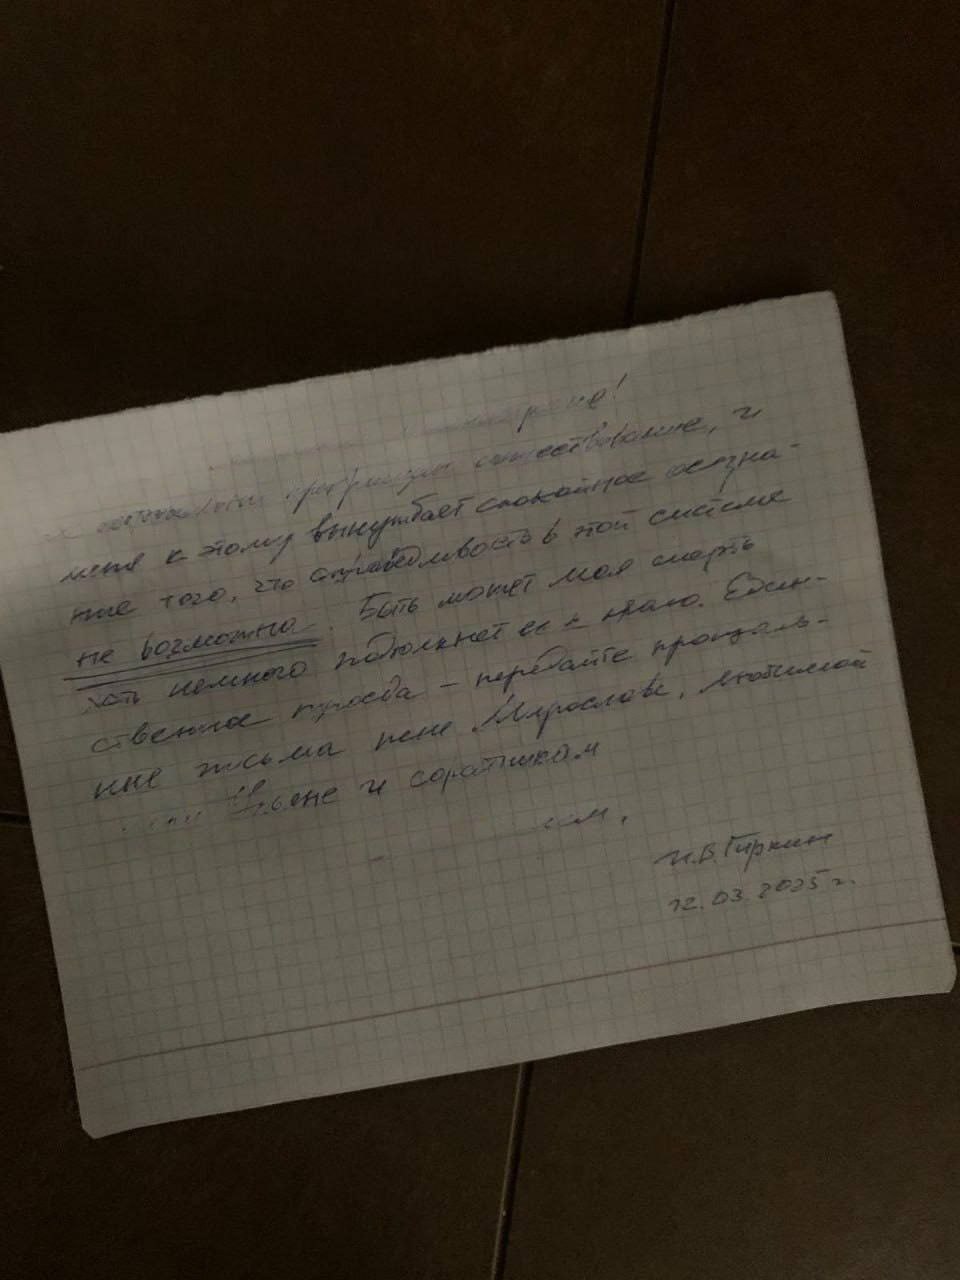 прекращаю существование, и
меня к этому вынуждает спокойное осозна-
ние того, что справедливость в этой системе
не возможна. Быть может моя смерть
хоть немного подтолкнет ее к краю. Един-
ственная просьба - передайте прощаль-
ные письма жене Мирославе, любимой
и соратникам
И.В. Гиркин
12.03.2025 г.